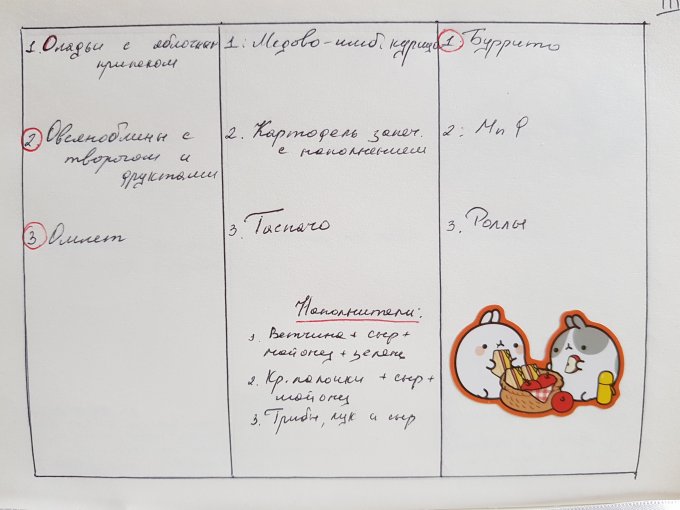 1. Оладьи с яблочным
припеком
2. Овсяноблины с
творогом и
фруктами
3 Омлет
1. Медово-имб. курица
2. Картофель запеч.
с наполнением
3. Гаспачо
Наполнители:
1. Ветчина + сыр +
майонез + зелень
2. Кр. палочки + сыр +
майонез
3. Грибы, лук и сыр
1 Буррито
2: МпФ
3. Роллы